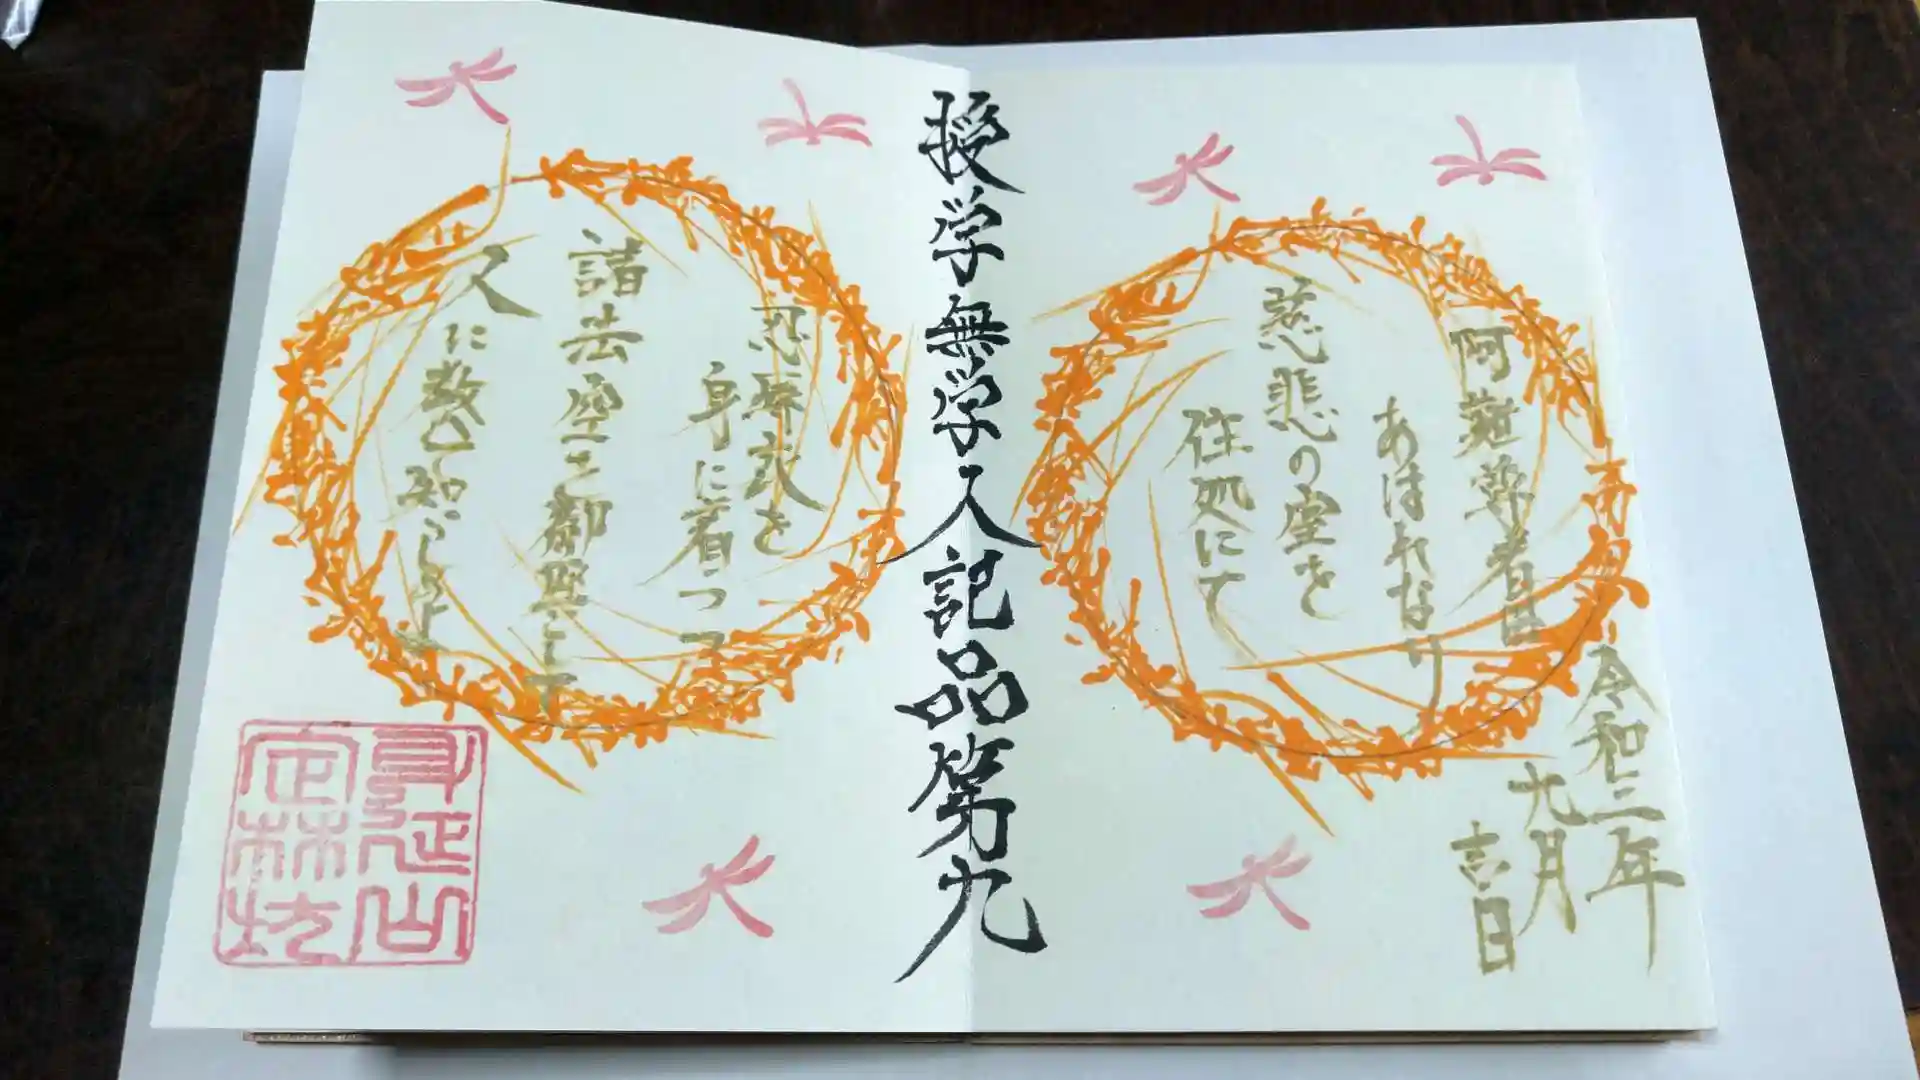 令和三年
九月
吉日
阿難尊者は
あはれなり
慈悲の室を
住処にて
授学無学人記品第九
忍辱衣を
身に着つつ
諸法空
人に
知らしむ
身延山
定林坊